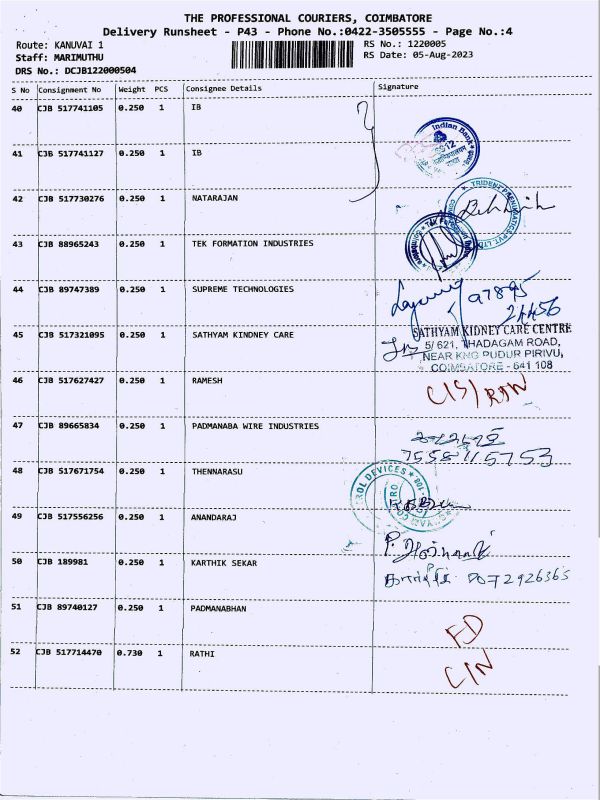 THE PROFESSIONAL COURIERS, COIMBATORE
Delivery Runsheet - P43 - Phone No.:0422-3505555 - Page No.:4
Route: KANUVAI 1
RS No.: 1220005
Staff: MARIMUTHU
RS Date: 05-Aug-2023
DRS No.: DCJB122000504
S No Consignment No Weight PCS Consignee Details Signature
40 CJB 517741105 0.250 1 IB
Indian Bank
41 CJB 517741127 0.250 1 IB
42 CJB 517730276 1 0.250 1 NATARAJAN
TRIDENT PNEUMATICS PVT. LTD
43 CJB 88965243 0.250 1 TEK FORMATION INDUSTRIES
44 CJB 89747389 0.250 1 SUPREME TECHNOLOGIES
97895
24456
45 CJB 517321095 0.250 1 SATHYAM KINDNEY CARE
SATHYAM KIDNEY CARE CENTRE
5/ 621, THADAGAM ROAD,
NEAR KNG PUDUR PIRIVU,
COIMBATORE - 641 108
46 CJB 517627427 0.250 1 RAMESH
CIS/RTN
47 CJB 89665834 0.250 1 PADMANABA WIRE INDUSTRIES
7558115753
48 CJB 517671754 0.250 1 THENNARASU
ROL DEVICES
49 CJB 517556256 0.250 1 ANANDARAJ
50 CJB 189981 0.250 1 KARTHIK SEKAR
51 CJB 89740127 0.250 1 PADMANABHAN
FD
52 CJB 517714470 0.730 1 RATHI
C/N